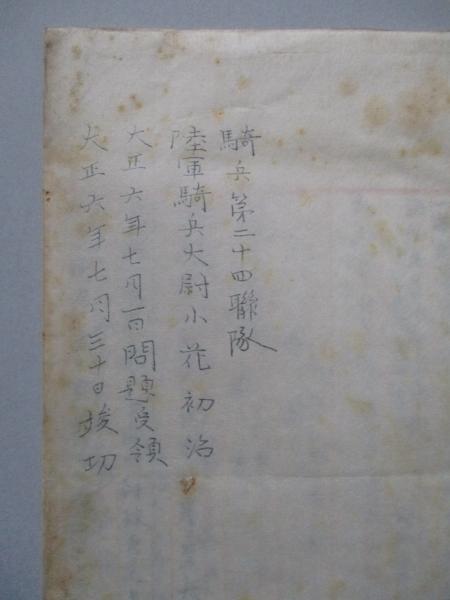 騎兵第二十四聯隊
陸軍騎兵大尉小花初治
大正六年七月一日問題受領
大正六年七月三十日竣功